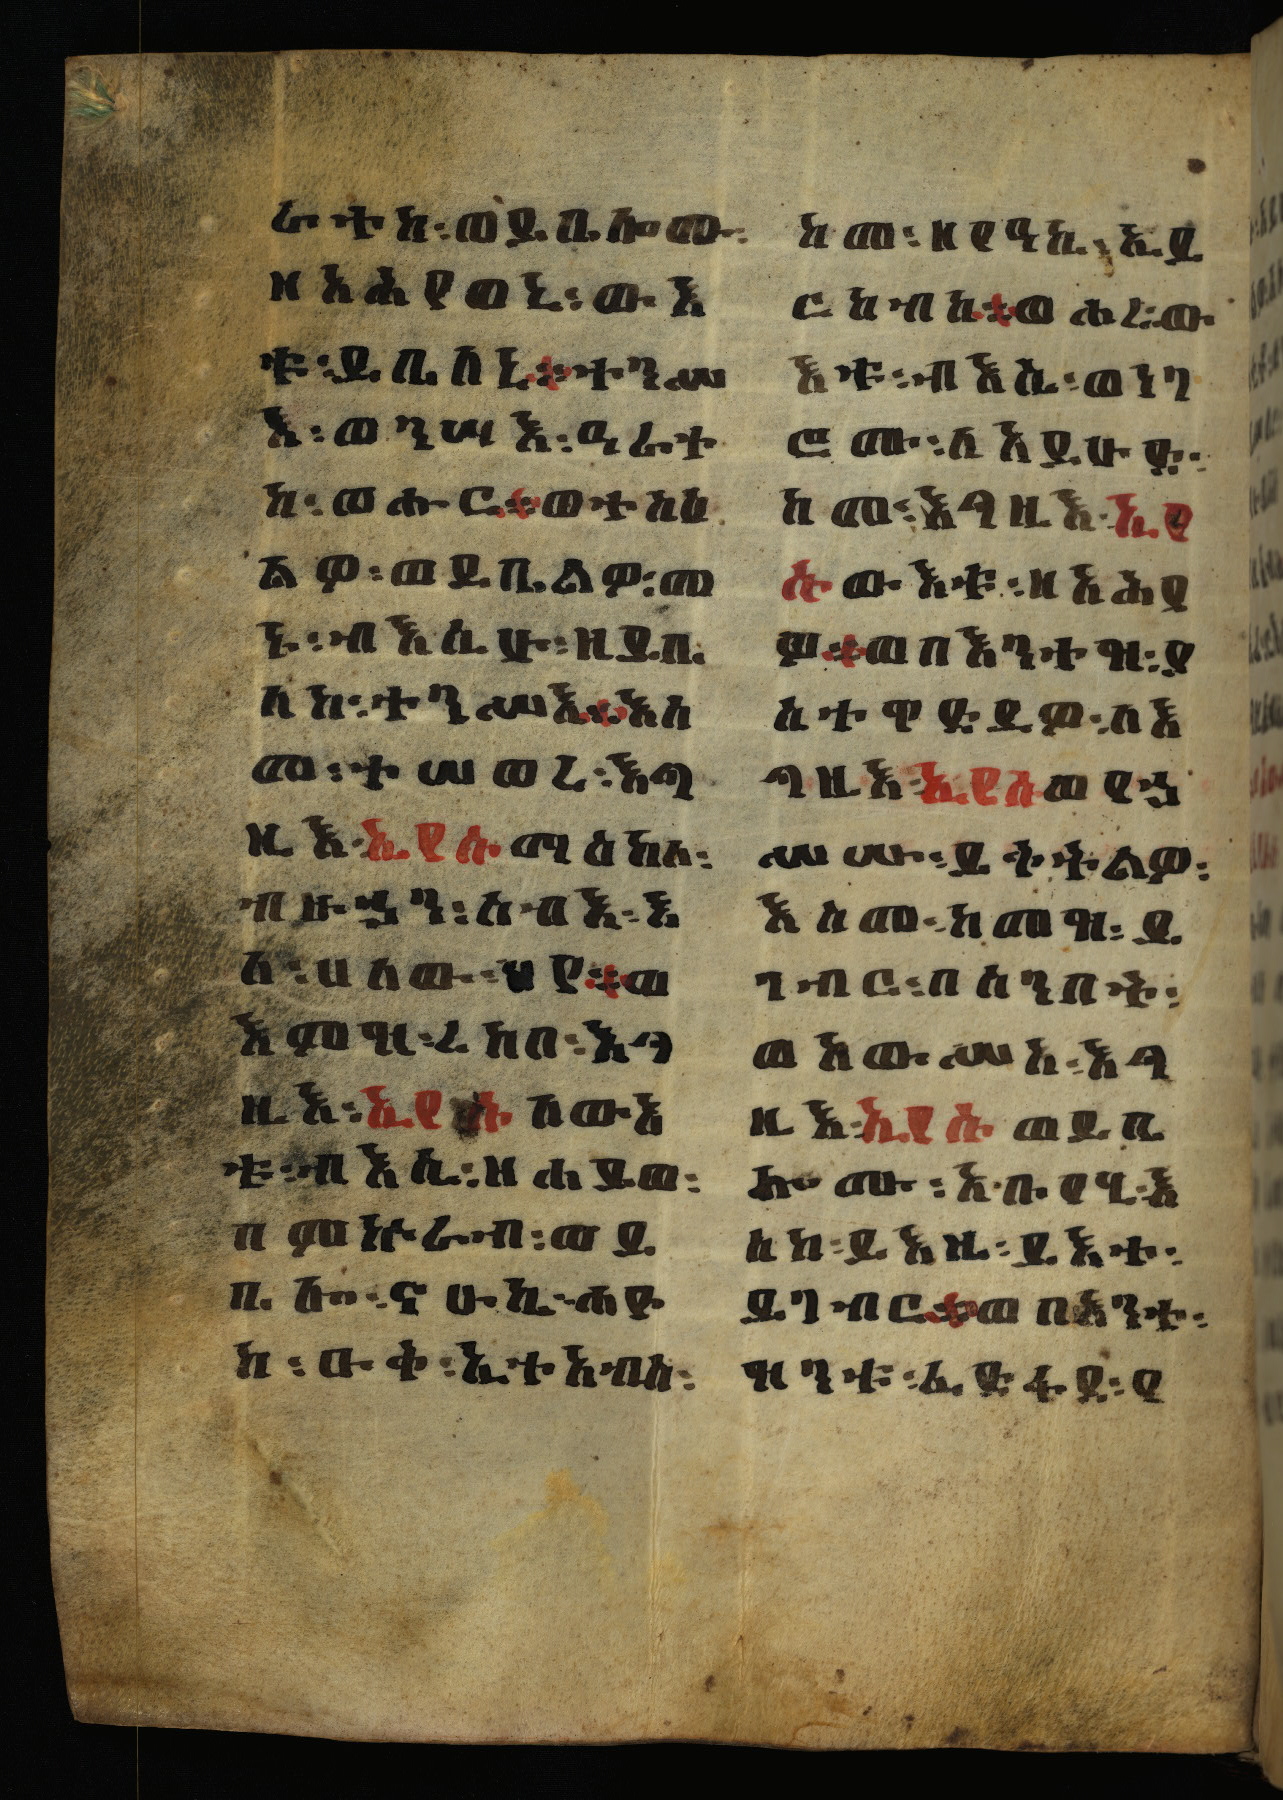 ራተከ፡ወይቤሎሙ፡
ዘአሕየወኒ፡ውእ
ቱ፡ይቤለኒ፨ተንሥ
እ፡ወንሣእ፡ዓራተ
ከ፡ወሑር፨ወተስእ
ልዎ፡ወይቤልዎ፡መ
ኑ፡ብእሲሁ፡ዘይቤ
ለከ፡ተንሥእ፨እስ
መ፡ተሠወረ፡እግ
ዚእ፡ኢየሱ ማዕከለ፡
ብዙኃን፡ሰብእ፡እ
ለ፡ሀለው፡ህየ፨ወ
እምዝ፡ረከበ፡እግ
ዚእ፡ኢየሱ ለውእ
ቱ፡ብእሲ፡ዘሐይወ፡
በምኵራብ፡ወይ
ቤሎ፡ናሁኬ፡ሐየው
ከ፡ዑቅ፡ኢተአብስ፡
ከመ፡ዘየዓኪ፡ኢይ
ርከብከ፨ወሖረ፡ው
እቱ፡ብእሲ፡ወነገ
ሮሙ፡ለአይሁድ፡
ከመ፡እግዚእ፡ኢየ
ሱ ውእቱ፡ዘአሕየ
ዎ፨ወበእንተዝ፡የ
ስተዋድይዎ፡ለእ
ግዚእ፡ኢየሱ ወየኃ
ሥሡ፡ይቅትልዎ፡
እስመ፡ከመዝ፡ይ
ገብር፡በሰንበት፡
ወአውሥአ፡እግ
ዚእ፡ኢየሱ ወይቤ
ሎሙ፡አቡየሂ፡እ
ስከ፡ይእዜ፡ይእተ፡
ይገብር፨ወበእንተ፡
ዝንቱ፡ፈድፋደ፡የ